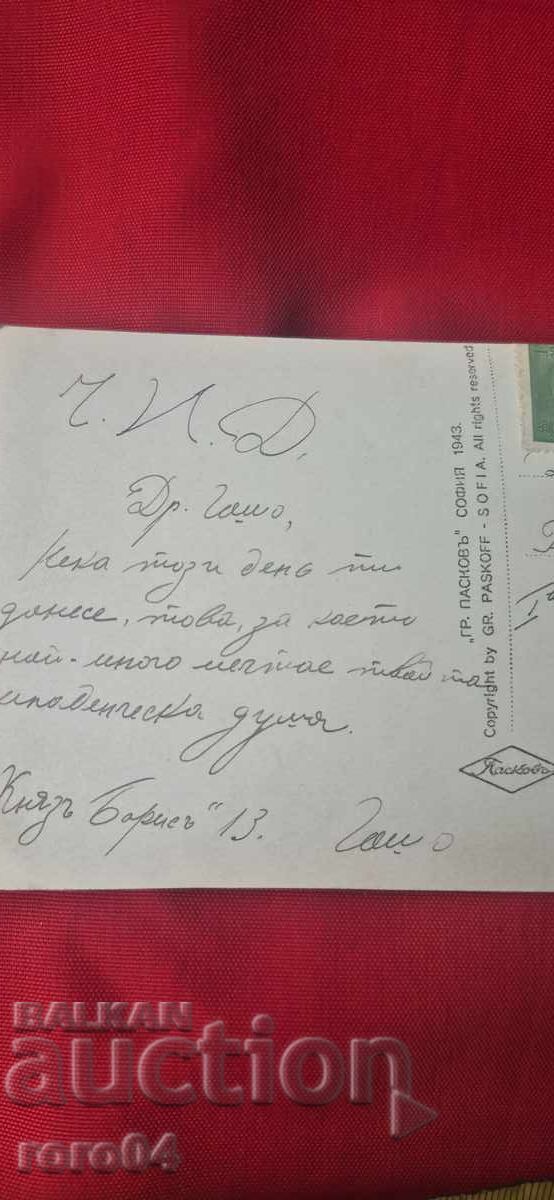 Ч. И. Д.
Др. Гошо,
Нека този день ти
донесе, това, за което
най-много мечтае твойта
младенческа душа.
Князъ Борисъ" 13. Гошо
"ГР. ПАСКОВЪ" СОФИЯ 1943.
Copyright by GR. PASKOFF - SOFIA. All rights reserved
Пасковъ
BALKAN
auction
roro04